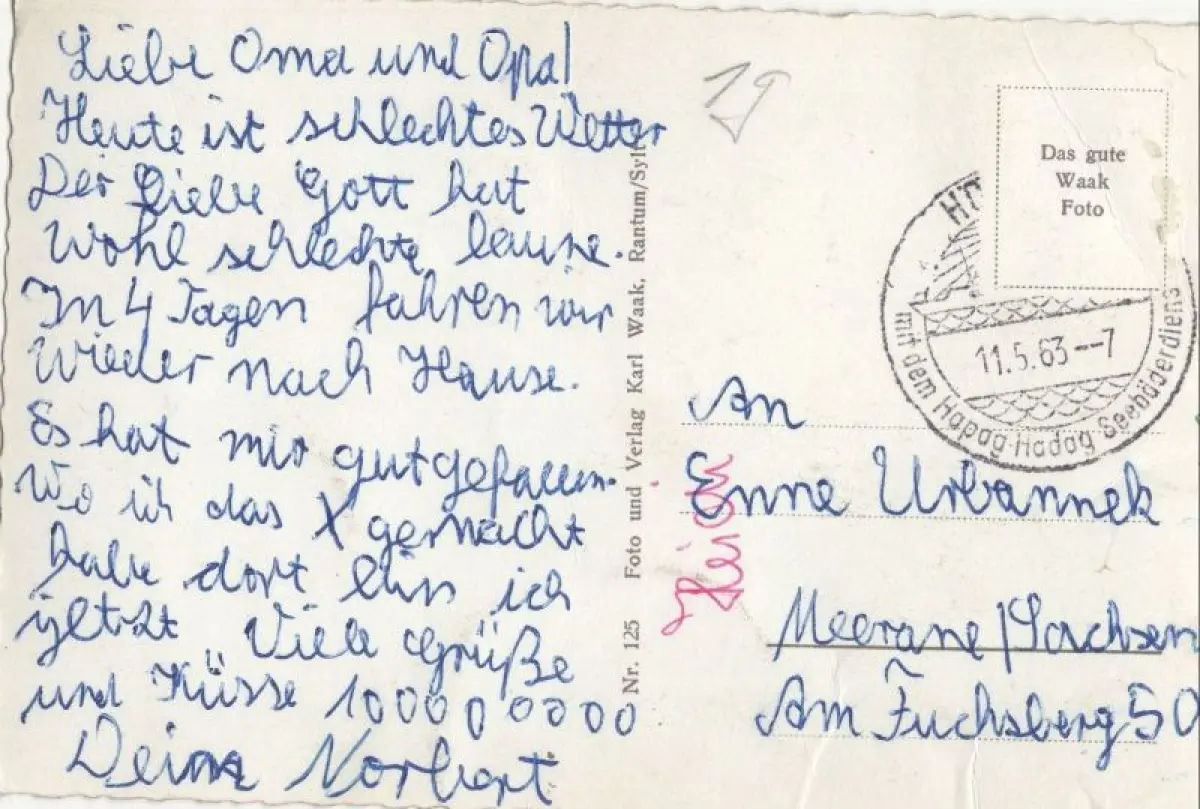 Liebe Oma und Opa!
Heute ist schlechtes Wetter
Der Liebe Gott hat
Wohl schlechte laune.
In 4 Tagen fahren wir
Wieder nach Hause.
Es hat mir gut gefallen.
Wo ich das X gemacht
habe dort bin ich
Viele Grüße
und Küsse 1000000000
Deine Norbert
Nr. 125 Foto und Verlag Karl Waak, Rantum/Sylt
19
Das gute
Waak
Foto
11.5.63--7
mit dem Hapag-Hadag Seebäderdiens
An
Enne Urbannek
Meerane/Sachsen
Am Fuchsberg 50